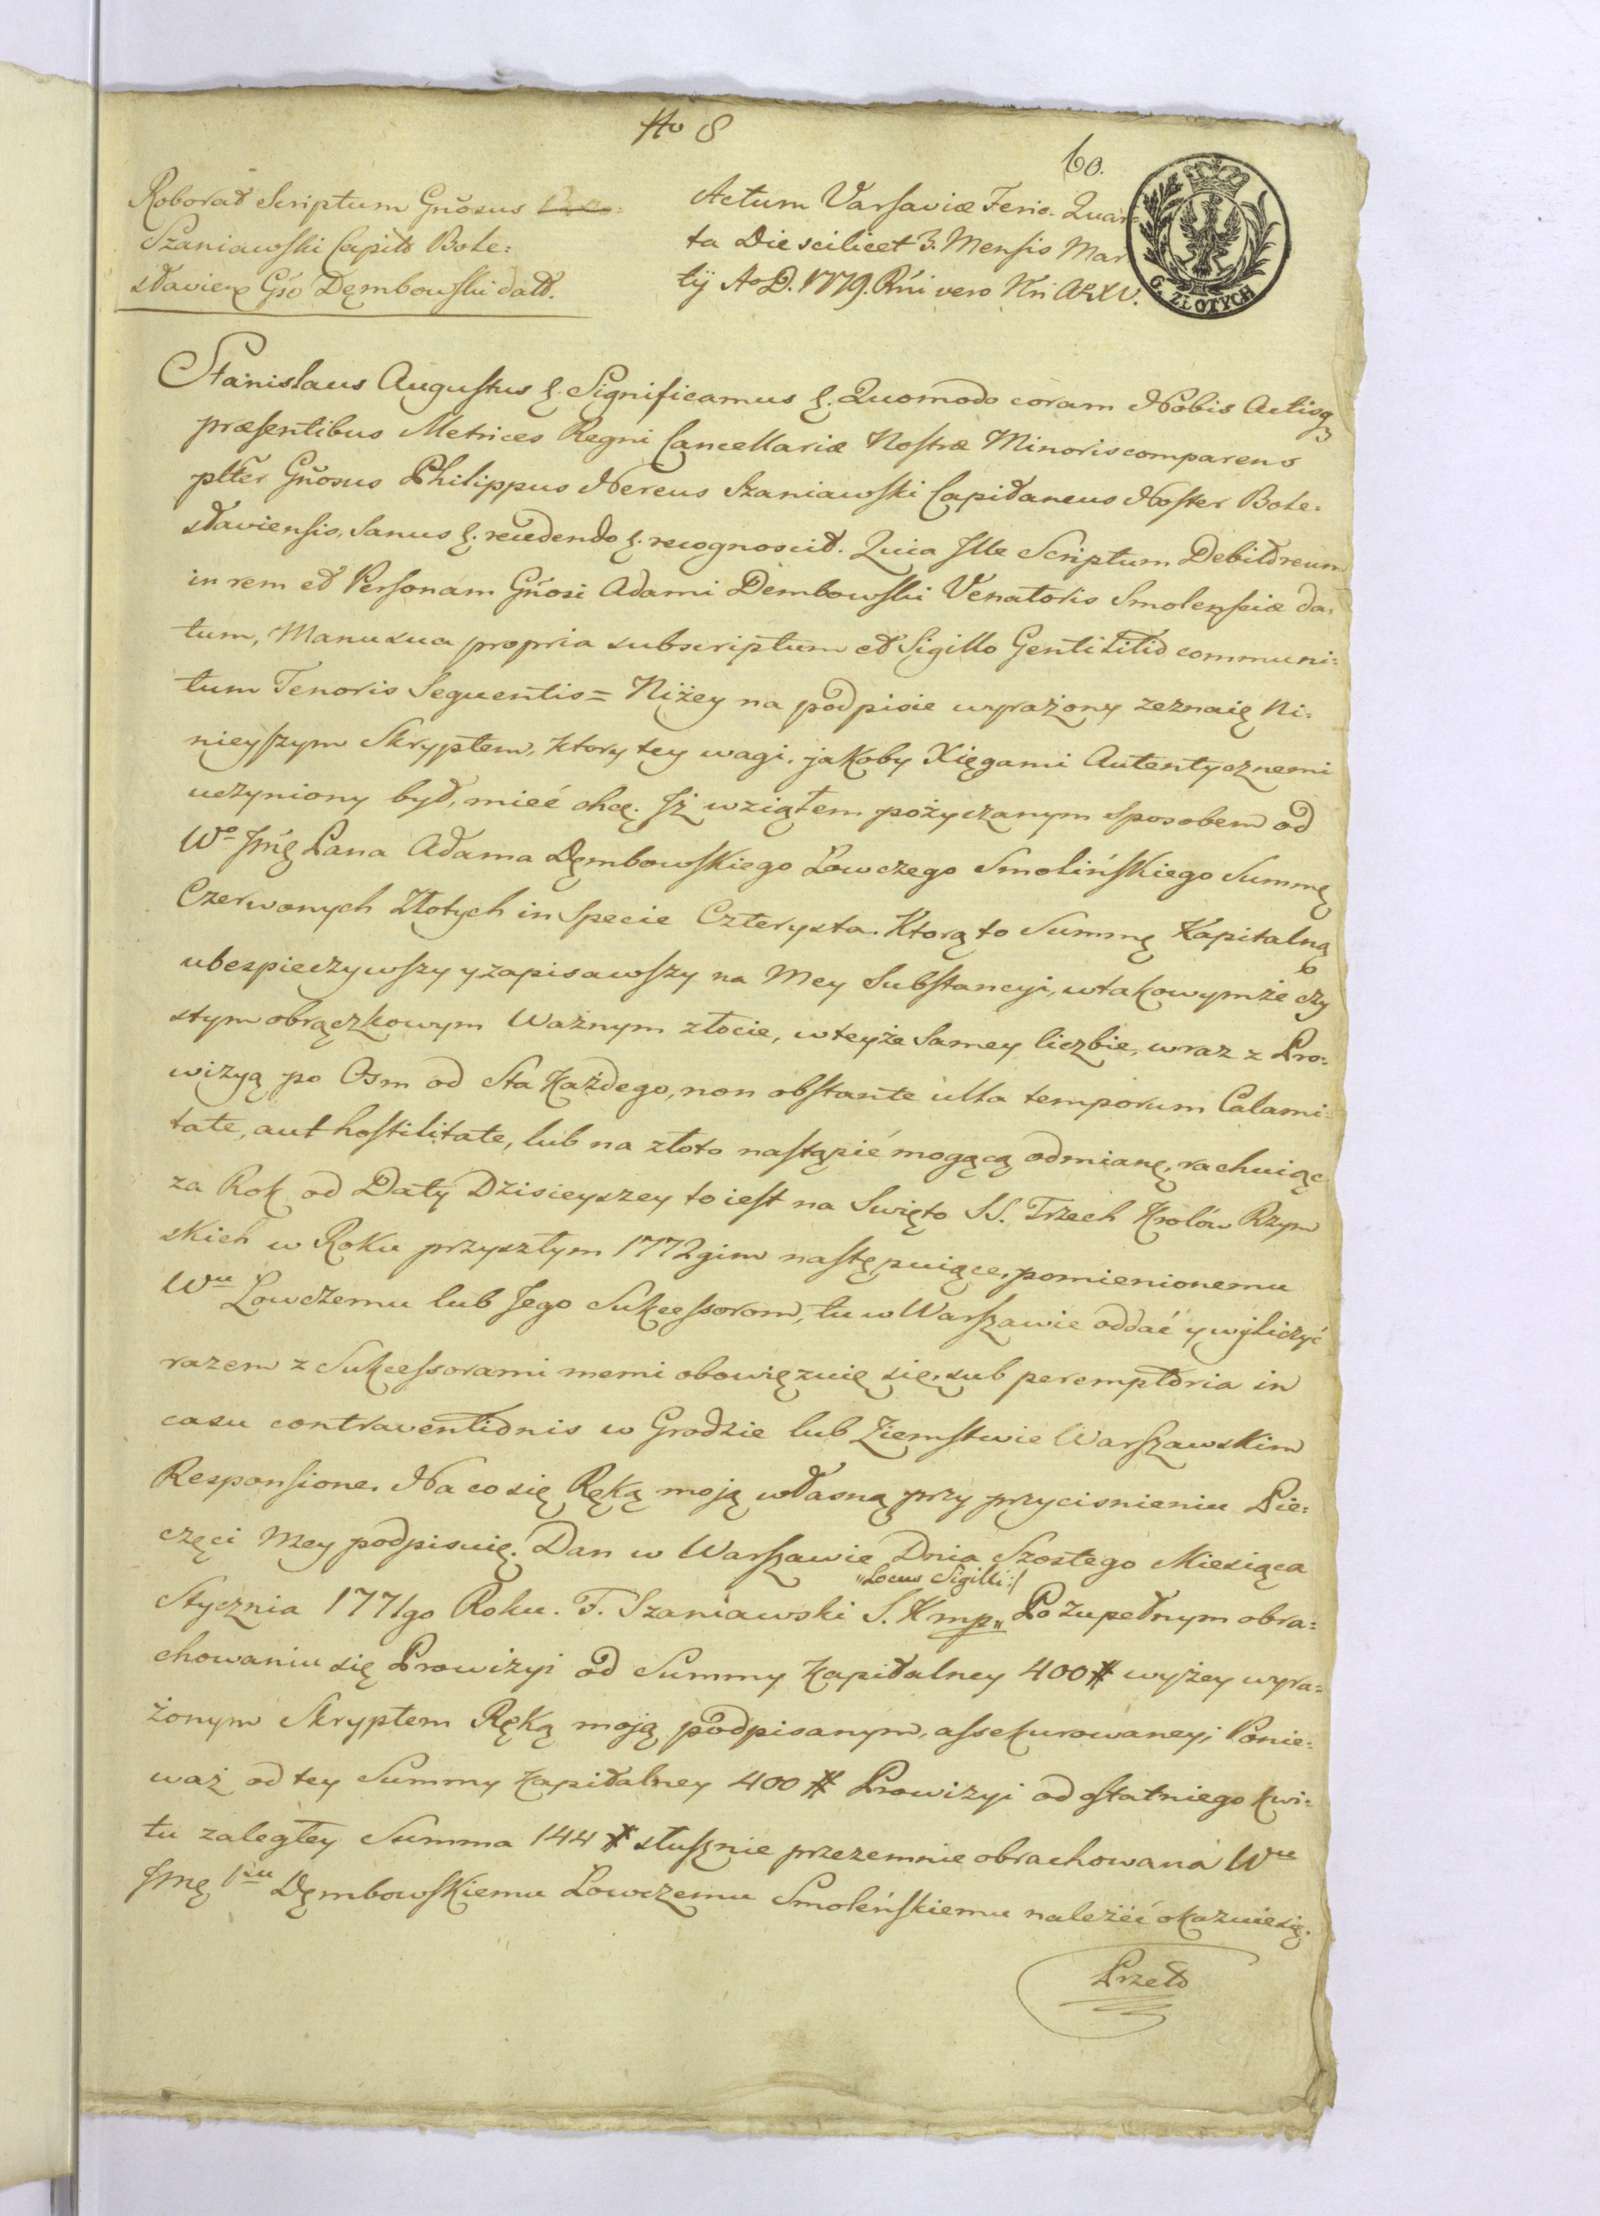 No 8
60.
Roborat Scriptum Gñosus
Szaniawski Capits Bole:
slaviens Gso Dęmbowski datt.
Actum Varsaviæ Feria Quar:
ta Die scilicet 3. Mensis Mar
tÿ Ao D. 1779. Rñi vero Nri AXV.
6. ZŁOTYCH
Stanislaus Augustus &. Significamus &. Quomodo coram Nobis Actisq3
præsentibus Metrices Regni Cancellariæ Nostræ Minoris comparens
plter Gñosus Philippus Nereus Szaniawski Capitaneus Noster Bole:
slaviensis, sanus &. recedendo &. recognoscit. Quia Ille Scriptum Debitoreum
in rem et Personam Gñosi Adami Dembowski Venatoris Smolensiæ da:
tum, Manu sua propria subscriptum et Sigillo Gentilitio communi:
tum Tenoris Sequentis = Niżey na podpisie wyrażony zeznaię Ni:
nieyszym Skryptem, ktory tey wagi, jakoby Xięgami Autentycznemi
uczyniony był, mieć chcę. Iż wziąłem pożyczanym sposobem od
Wo Jmę Pana Adama Dęmbowskiego Łowczego Smolińskiego Summę
Czerwonych Złotych in Specie Czterysta. Ktorą to Summę Kapitalną
ubespieczywszy y zapisawszy na Mey Substancyi, w takowymże czy
stym obrączkowym Ważnym złocie, w teyże Samey liczbie, wraz z Pro:
wizyą po Osm od Sta Każdego, non obstante ulla temporum Calami:
tate, aut hostilitate, lub na złoto nastąpić mogącą odmianę, rachuiąc
za Rok od Daty Dzisieyszey to iest na Swięto SS. Trzech Krolów Rzym
skich w Roku przyszłym 1772gim następuiące, pomienionemu
Wu Łowczemu lub Jego Sukcessorom, tu w Warszawie oddać y wyliczyć
razem z Sukcessorami memi obowięzuię się, sub peremptoria in
casu contraventionis w Grodzie lub Ziemstwie Warszawskim
Responsione. Na co się Ręką moją własną przy przycisnieniu Pie:
częci Mey podpisuię. Dan w Warszawie Dnia Szostego Miesiąca
"Locus Sigilli:/
Stycznia 1771go Roku. F. Szaniawski S. K mp" Po zupełnym obra:
chowaniu się Prowizyi od Summy Kapitalney 400 # wyżey wyra:
żonym Skryptem Ręką moją podpisanym, assekurowaney, Ponie:
waż od tey Summy Kapitalney 400 # Prowizyi od ostatniego kwi:
tu zaległey Summa 144 # słusznie przezemnie obrachowana Wu
Jmę Pnu Dęmbowskiemu Łowczemu Smoleńskiemu należeć okazuie się.
Przeto